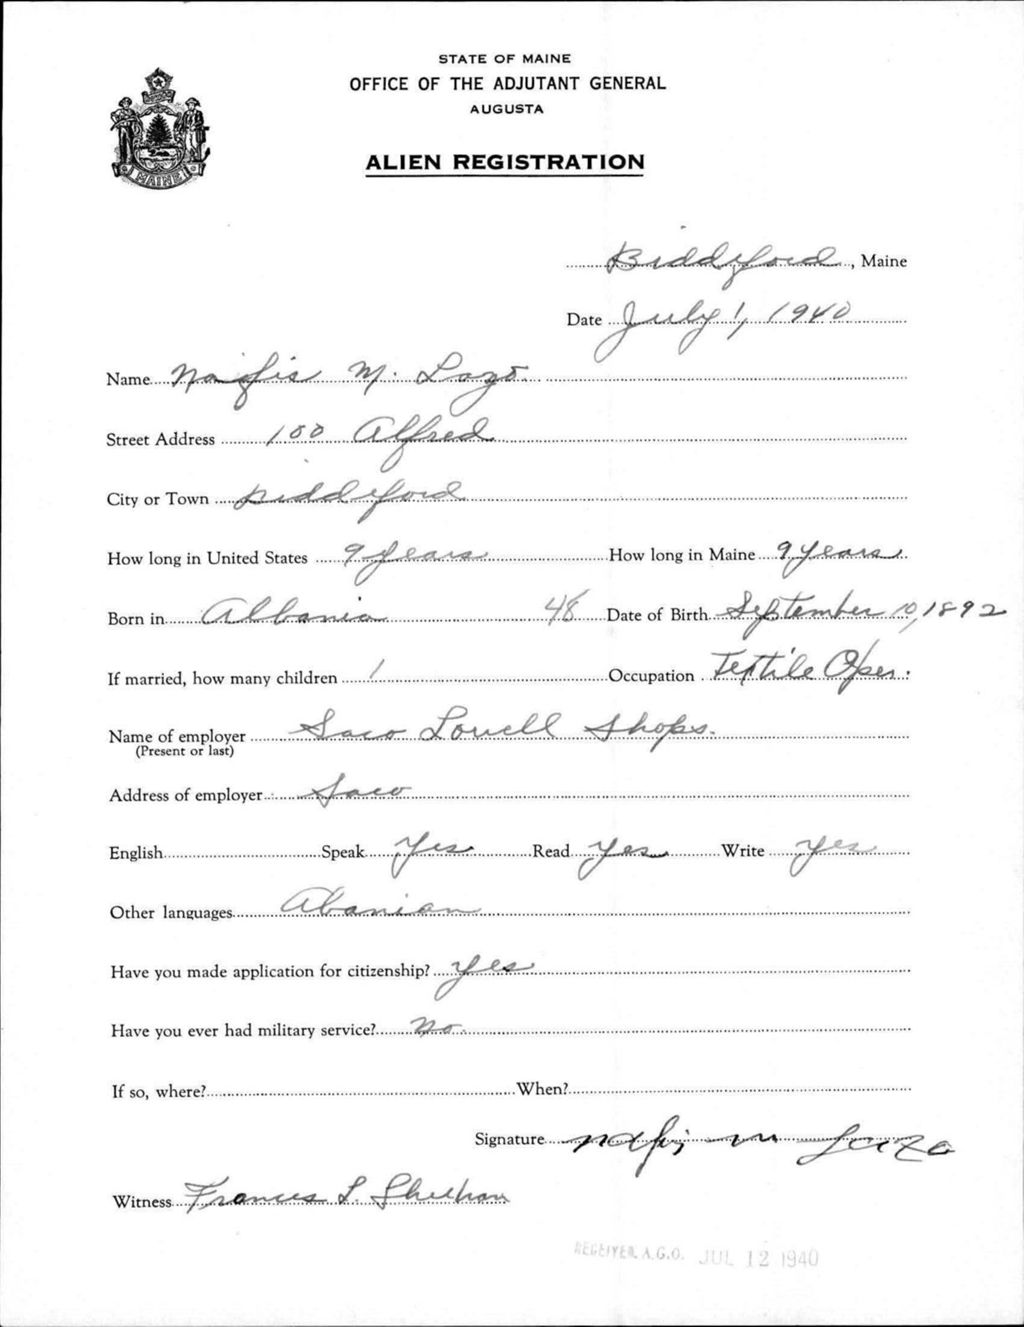 STATE OF MAINE
OFFICE OF THE ADJUTANT GENERAL
AUGUSTA
MAINE
ALIEN REGISTRATION
Biddeford, Maine
Date July 1, 1940
Name Nafis M. Lazo
Street Address 100 Alfred
City or Town Biddeford
How long in United States 9 years How long in Maine 9 years
Born in Albania 48 Date of Birth September 10, 1892
If married, how many children 1 Occupation Textile Oper.
Name of employer Saco Lowell Shops.
(Present or last)
Address of employer Saco
English Speak Yes Read Yes Write Yes
Other languages Abanian
Have you made application for citizenship? Yes
Have you ever had military service? No
If so, where? When?
Signature nafis m Lazo
Witness Frances L. Sheehan
RECEIVED A.G.O. JUL 12 1940